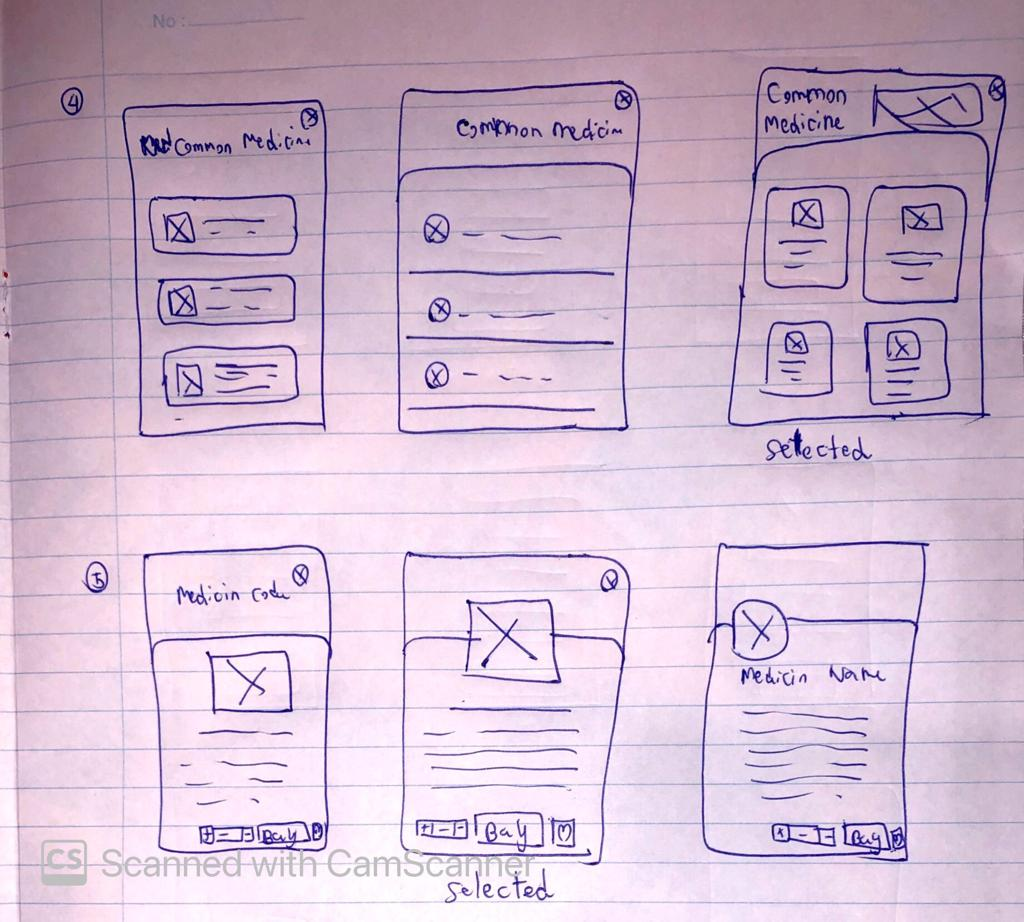 No :
4
Common Medicine
Common medicin
Common
Medicine
selected
5
Medicin Code
Buy
Buy
Medicin Name
Buy
selected
CS Scanned with CamScanner